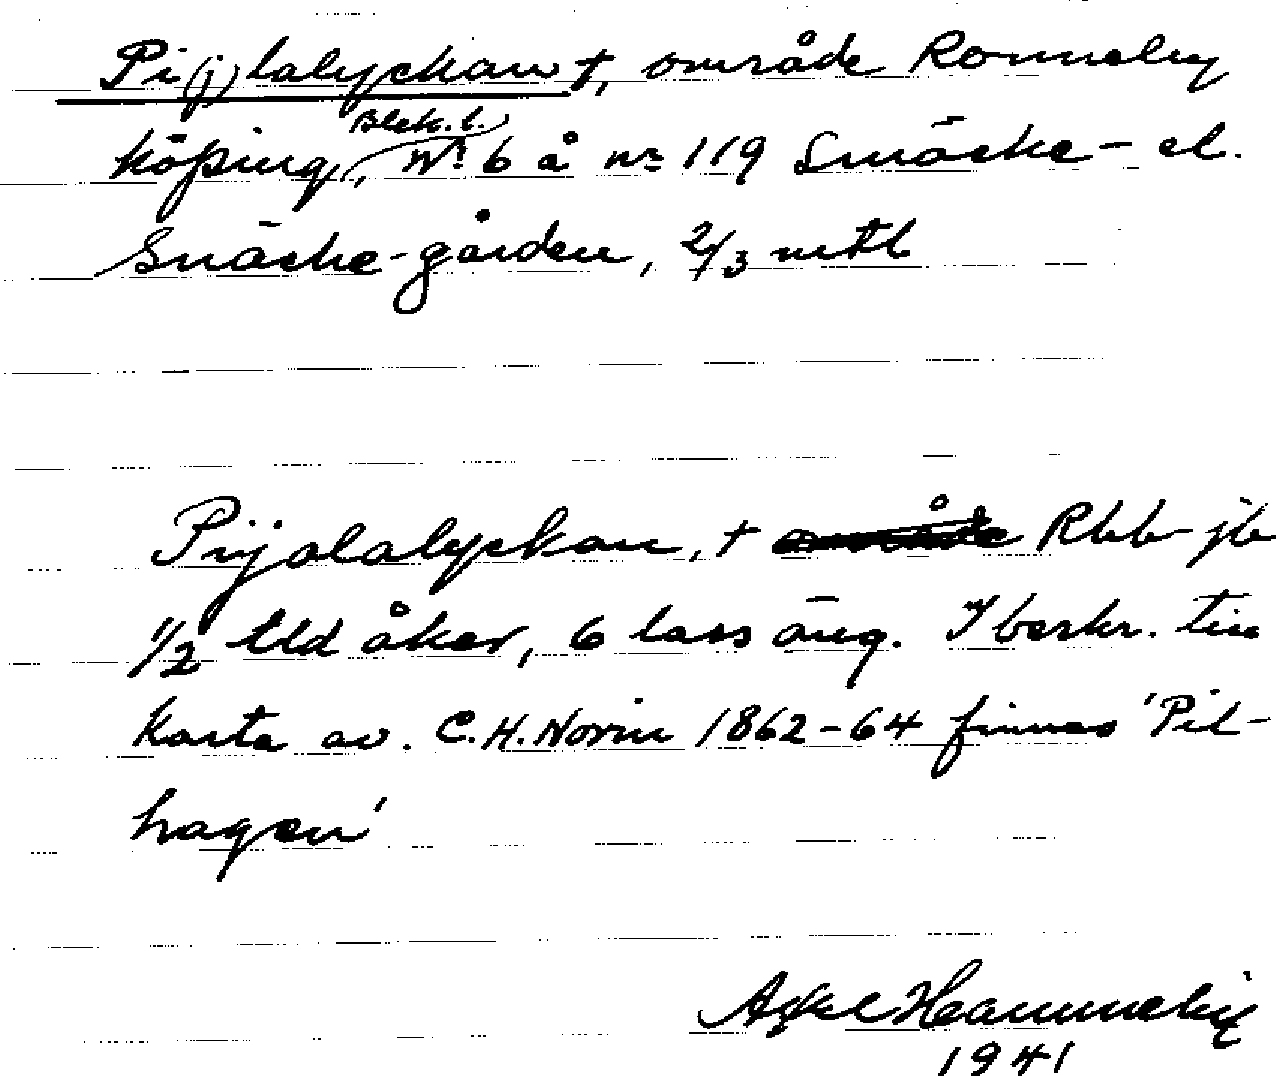 Pi(j)lalyckan †, område Ronneby
Blek. l.
köping, Nr 6 å nr 119 Snäcke- el.
Snäcke-gården, 2/3 mtl
Pijlalyckan, † område Rbb jb
1/2 tld åker, 6 lass äng. I beskr. till
Karta av. C.H. Norin 1862-64 finnes 'Pil-
hagen'
Axel
1941